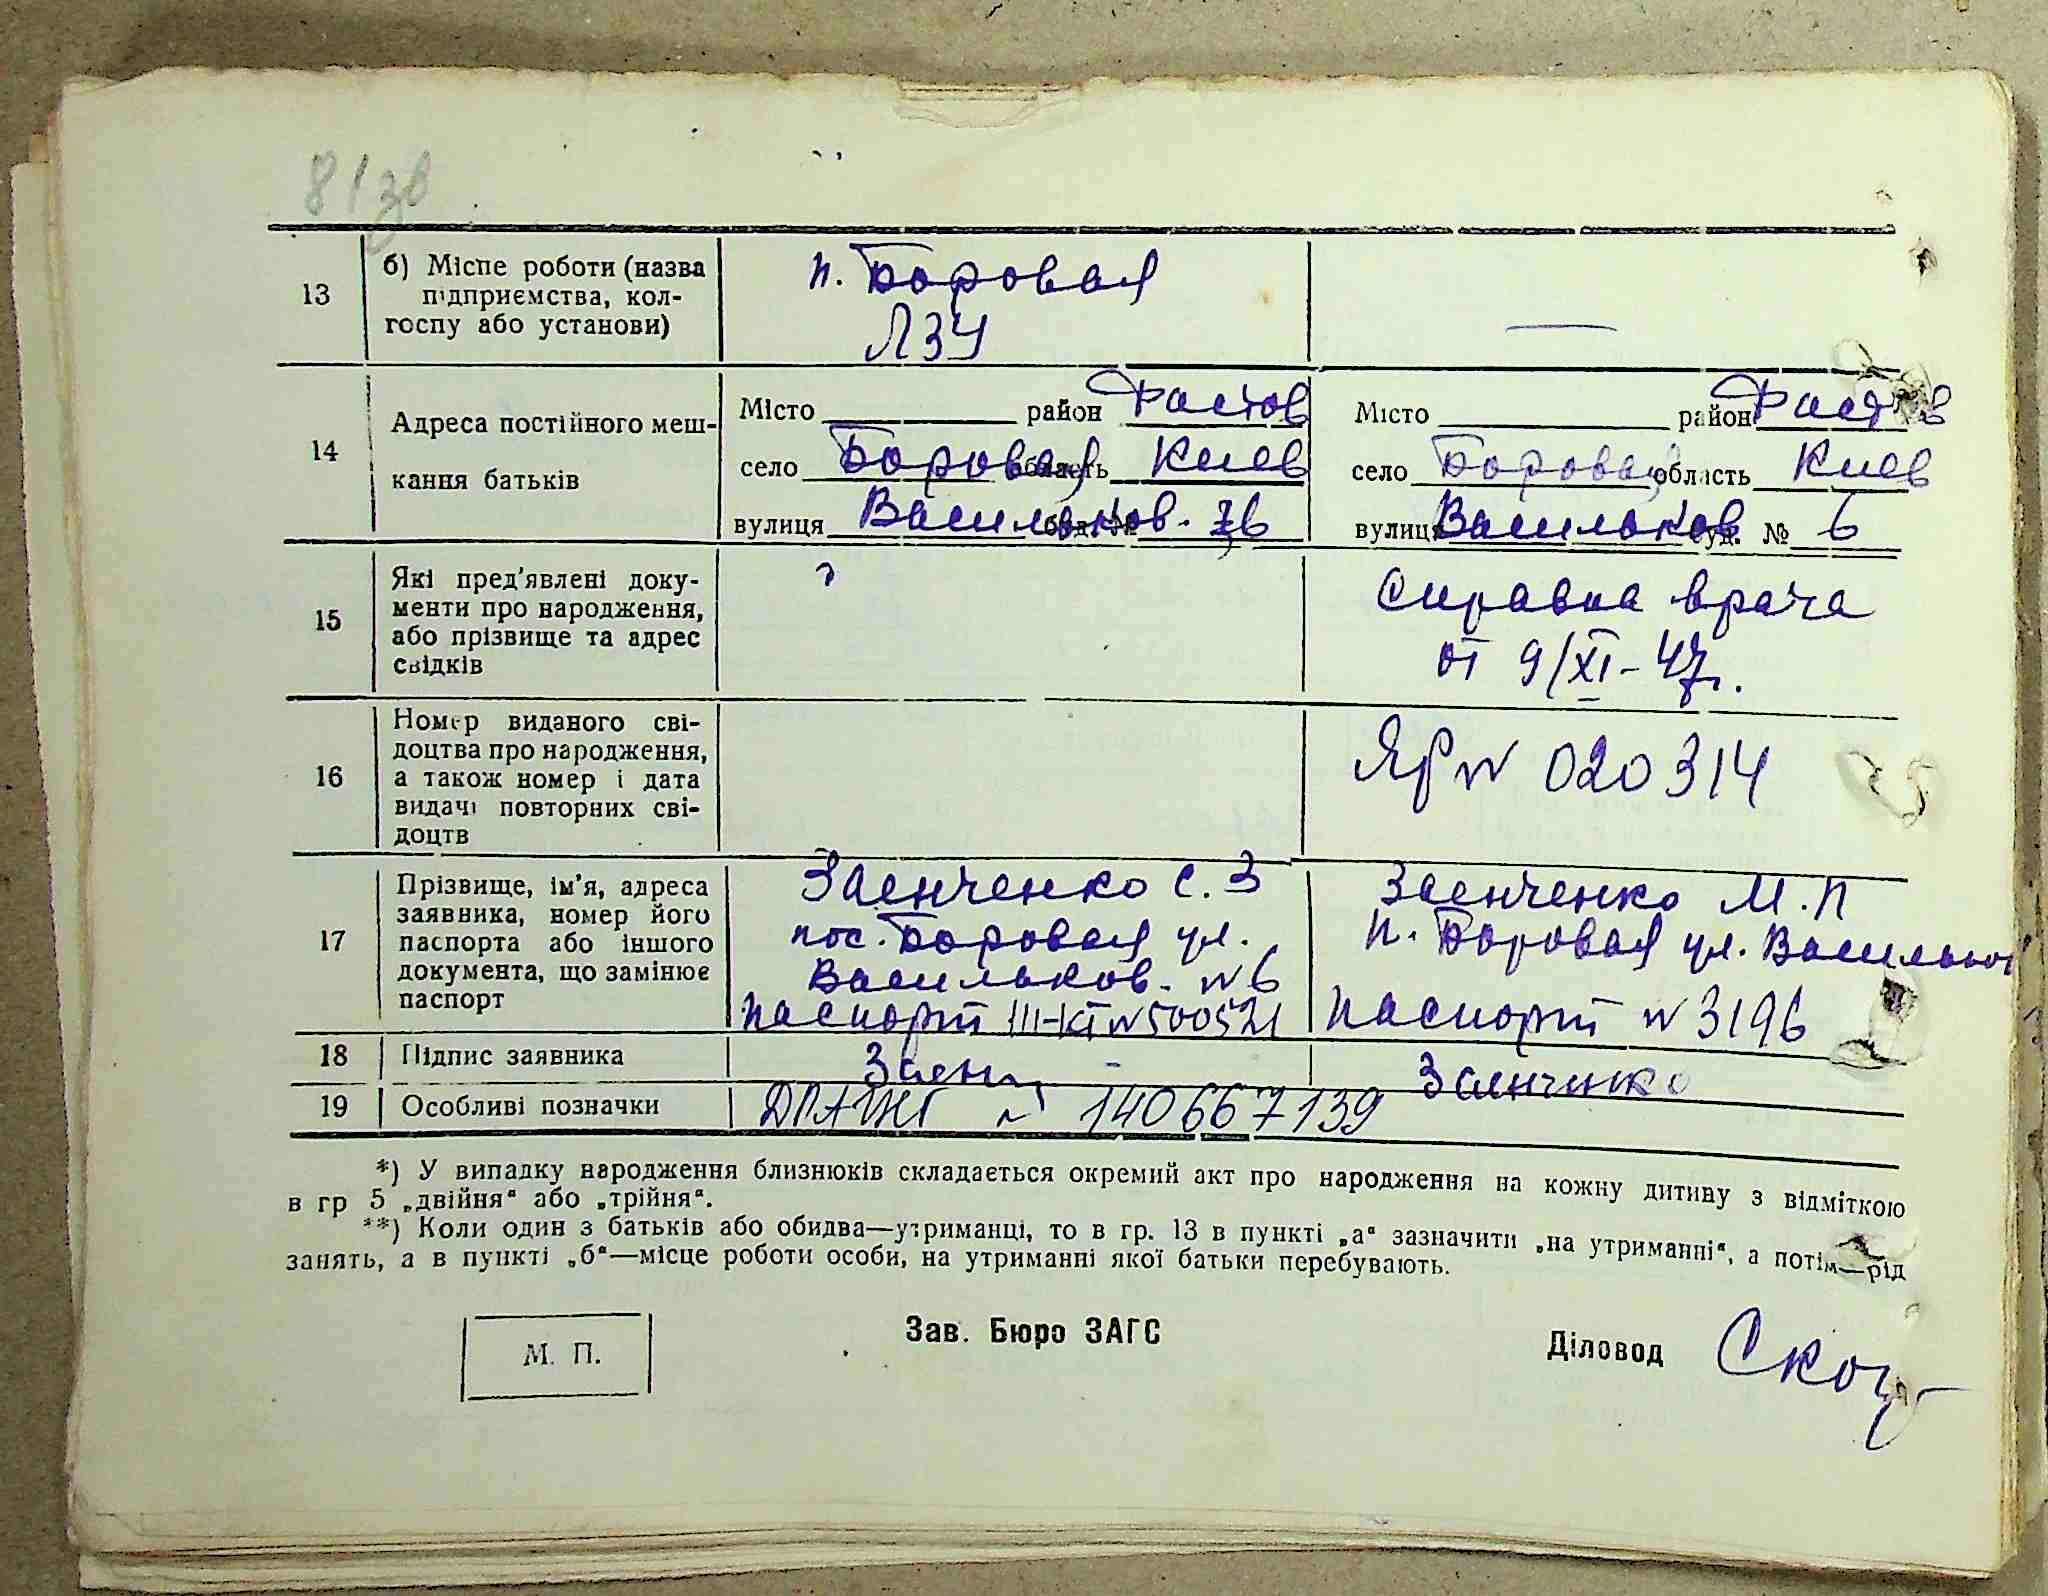 81зв
13
б) Місце роботи (назва
підприємства, кол-
госпу або установи)
п. Боровая
ЛЗУ
—
14
Адреса постійного меш-
кання батьків
Місто район Фастов
село Боровая область Киев
вулиця Васильков. буд. №
Місто район Фастов
село Боровая область Киев
вулиця Васильков буд. № 6
15
Які пред'явлені доку-
менти про народження,
або прізвище та адрес
свідків
Справка врача
от 9/XI-47г.
16
Номер виданого сві-
доцтва про народження,
а також номер і дата
видачі повторних сві-
доцтв
ЯР № 020314
17
Прізвище, ім'я, адреса
заявника, номер його
паспорта або іншого
документа, що замінює
паспорт
Заенченко С. З
пос. Боровая ул.
Васильков. № 6
паспорт № 500521
Заенченко М. П
п. Боровая ул. Васильков
паспорт № 3196
18
Підпис заявника
Заен
Заенченко
19
Особливі позначки
ДРАЦСГ № 140667139
*) У випадку народження близнюків складається окремий акт про народження на кожну дитину з відміткою
в гр 5 „двійня" або „трійня".
**) Коли один з батьків або обидва—утриманці, то в гр. 13 в пункті „а" зазначити „на утриманні", а потім—рід
занять, а в пункті „б"—місце роботи особи, на утриманні якої батьки перебувають.
М. П.
Зав. Бюро ЗАГС
Діловод